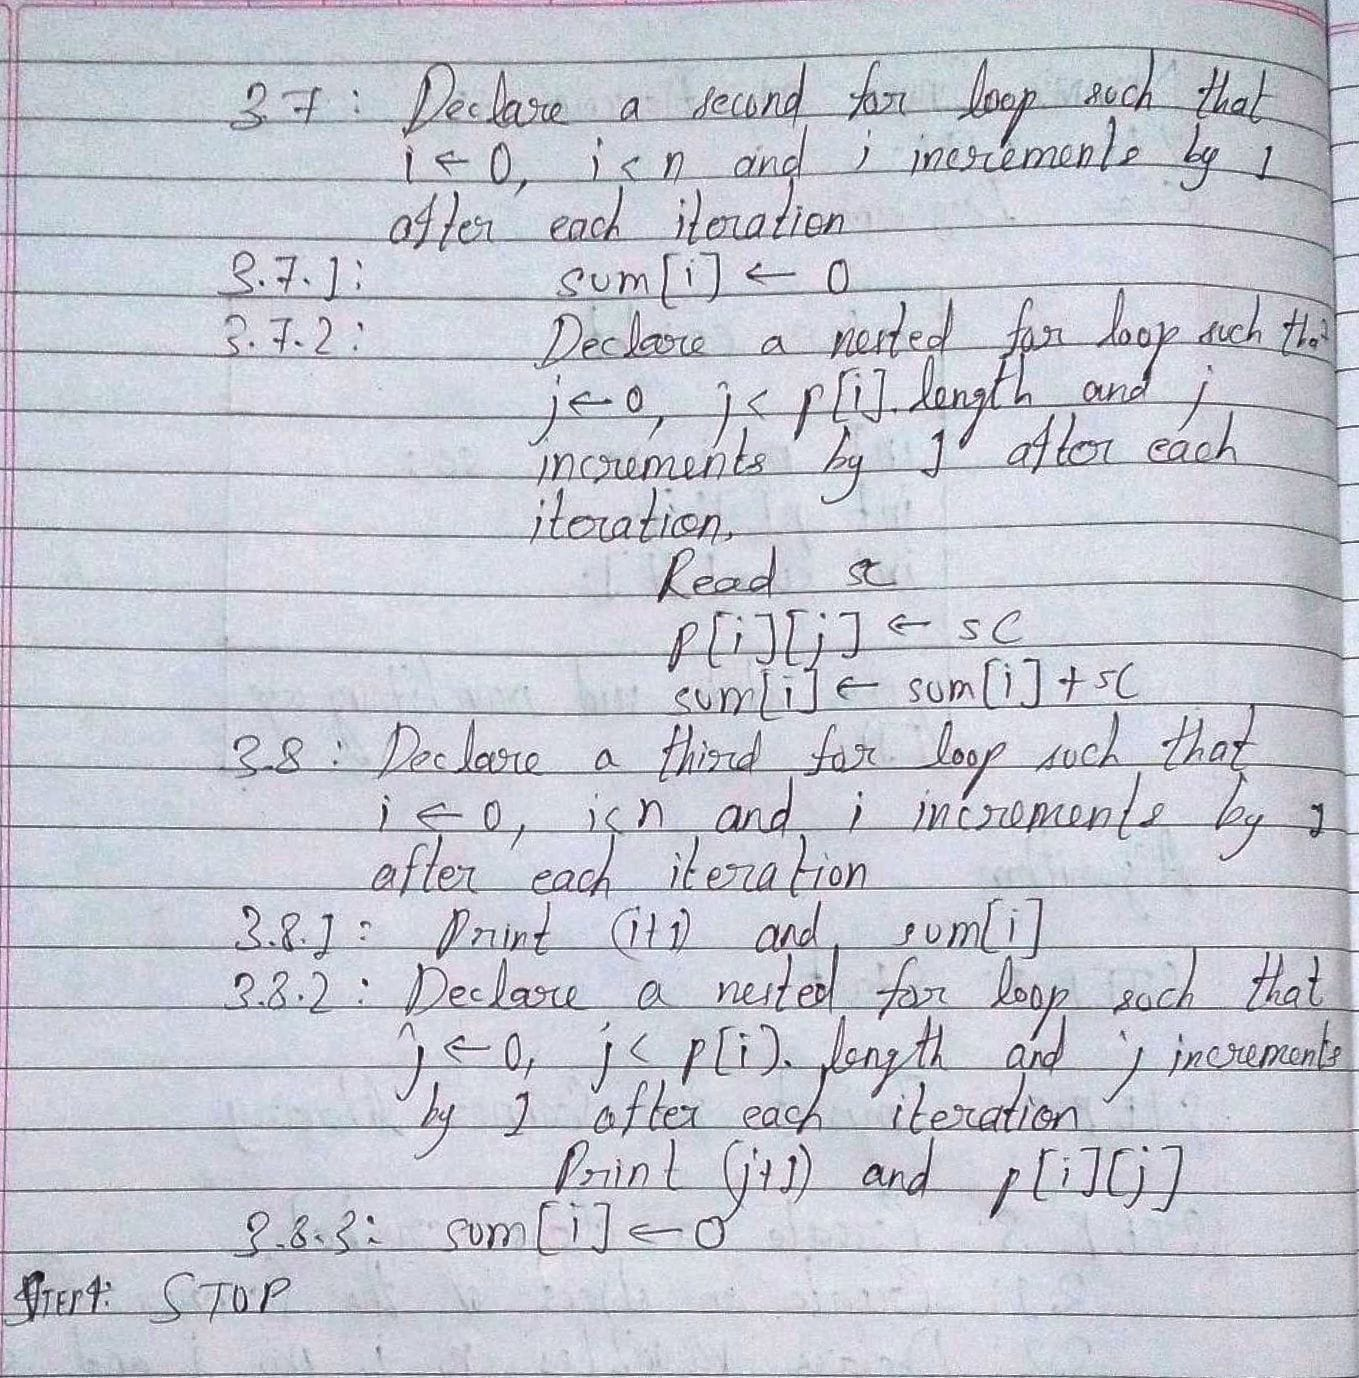 3.7: Declare a second for loop such that
i ← 0, i < n and i increments by 1
after each iteration
3.7.1: sum[i] ← 0
3.7.2: Declare a nested for loop such that
j ← 0, j < p[i].length and j
increments by 1 after each
iteration.
Read sc
p[i][j] ← sc
sum[i] ← sum[i] + sc
3.8: Declare a third for loop such that
i ← 0, i<n and i increments by 1
after each iteration
3.8.1: Print (i+1) and sum[i]
3.8.2: Declare a nested for loop such that
j ← 0, j < p[i].length and j increments
by 1 after each iteration
Print (j+1) and p[i][j]
3.8.3: sum[i] ← 0
STEP4: STOP